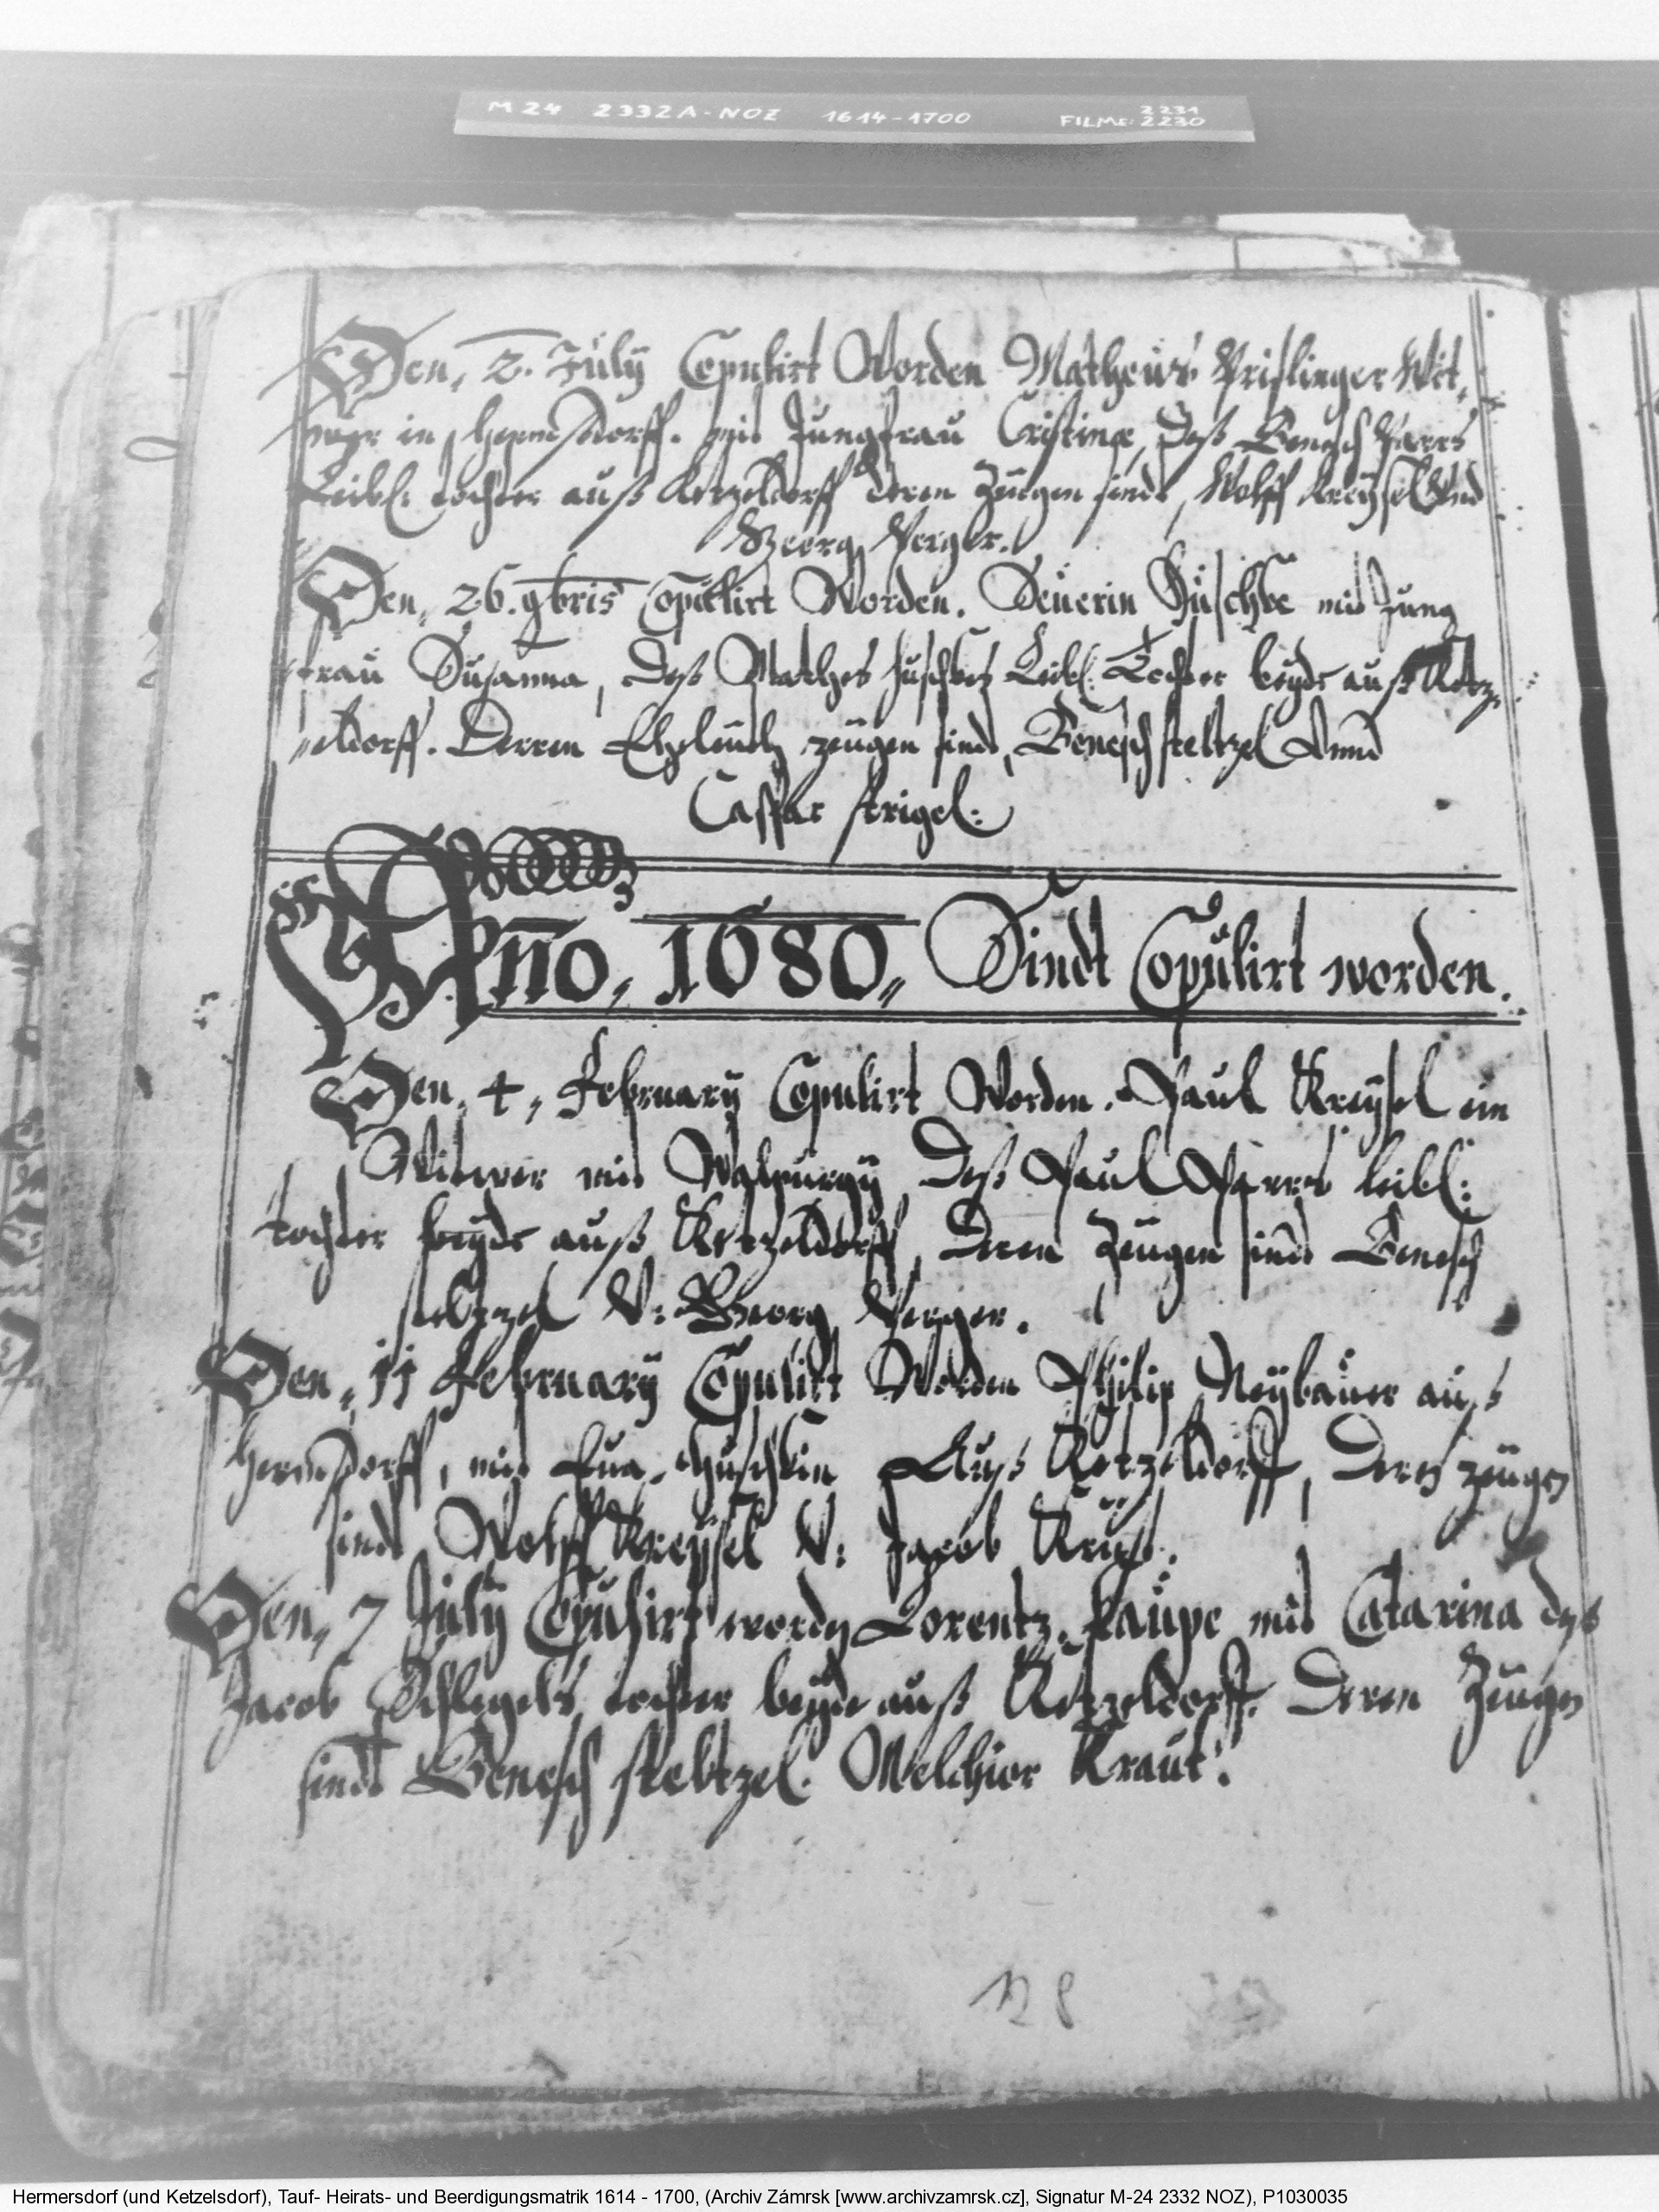 M 24 2332 A - NOZ 1614 - 1700 FILME: 2231 2230
Den, 2. July Copulirt Worden Matheus Prislinger Wit,
wer in Hermsdorff. mit Jungfrau Cristina, Deß Benesch Parrs
Leibl: tochter auß Ketzeldorff deren Zeugen sindt, Wolff Kreysel Und
Georg Perger.
Den, 26. 9bris Copulirt Worden. Seuerin Huschke mit Jung
frau Susanna, Deß Mathes Huschkes Leibl: Tochter beyde auß Ketz,
eldorff. Derren Zeugen sindt, Benesch steltzel Unnd
Caspar strigel:
Año, 1680,, Sindt Copulirt worden.
Den, 4, February Copulirt Worden. Paul Kreysel ein
Witwer mit Walpurgy, Deß Paul Parrs leibl:
tochter beyde auß Ketzeldorff, Deren Zeugen sindt Benesch
steltzel V: Georg Perger.
Den, 11 February Copulirt Worden Philip Neybauer auß
Hermsdorff, mit Eua Huschkin Auß Ketzeldorff, Deren zeugen
sindt Wolff Kreysel V: Jacob
Den, 7 July Copulirt worden Lorentz kaupe mit Catarina deß
Jacob Schlegels tochter beyde auß Ketzeldorff. Deren Zeugen
sindt Benesch steltzel. Melchior Kraut.
Hermersdorf (und Ketzelsdorf), Tauf- Heirats- und Beerdigungsmatrik 1614 - 1700, (Archiv Zámrsk [www.archivzamrsk.cz], Signatur M-24 2332 NOZ), P1030035